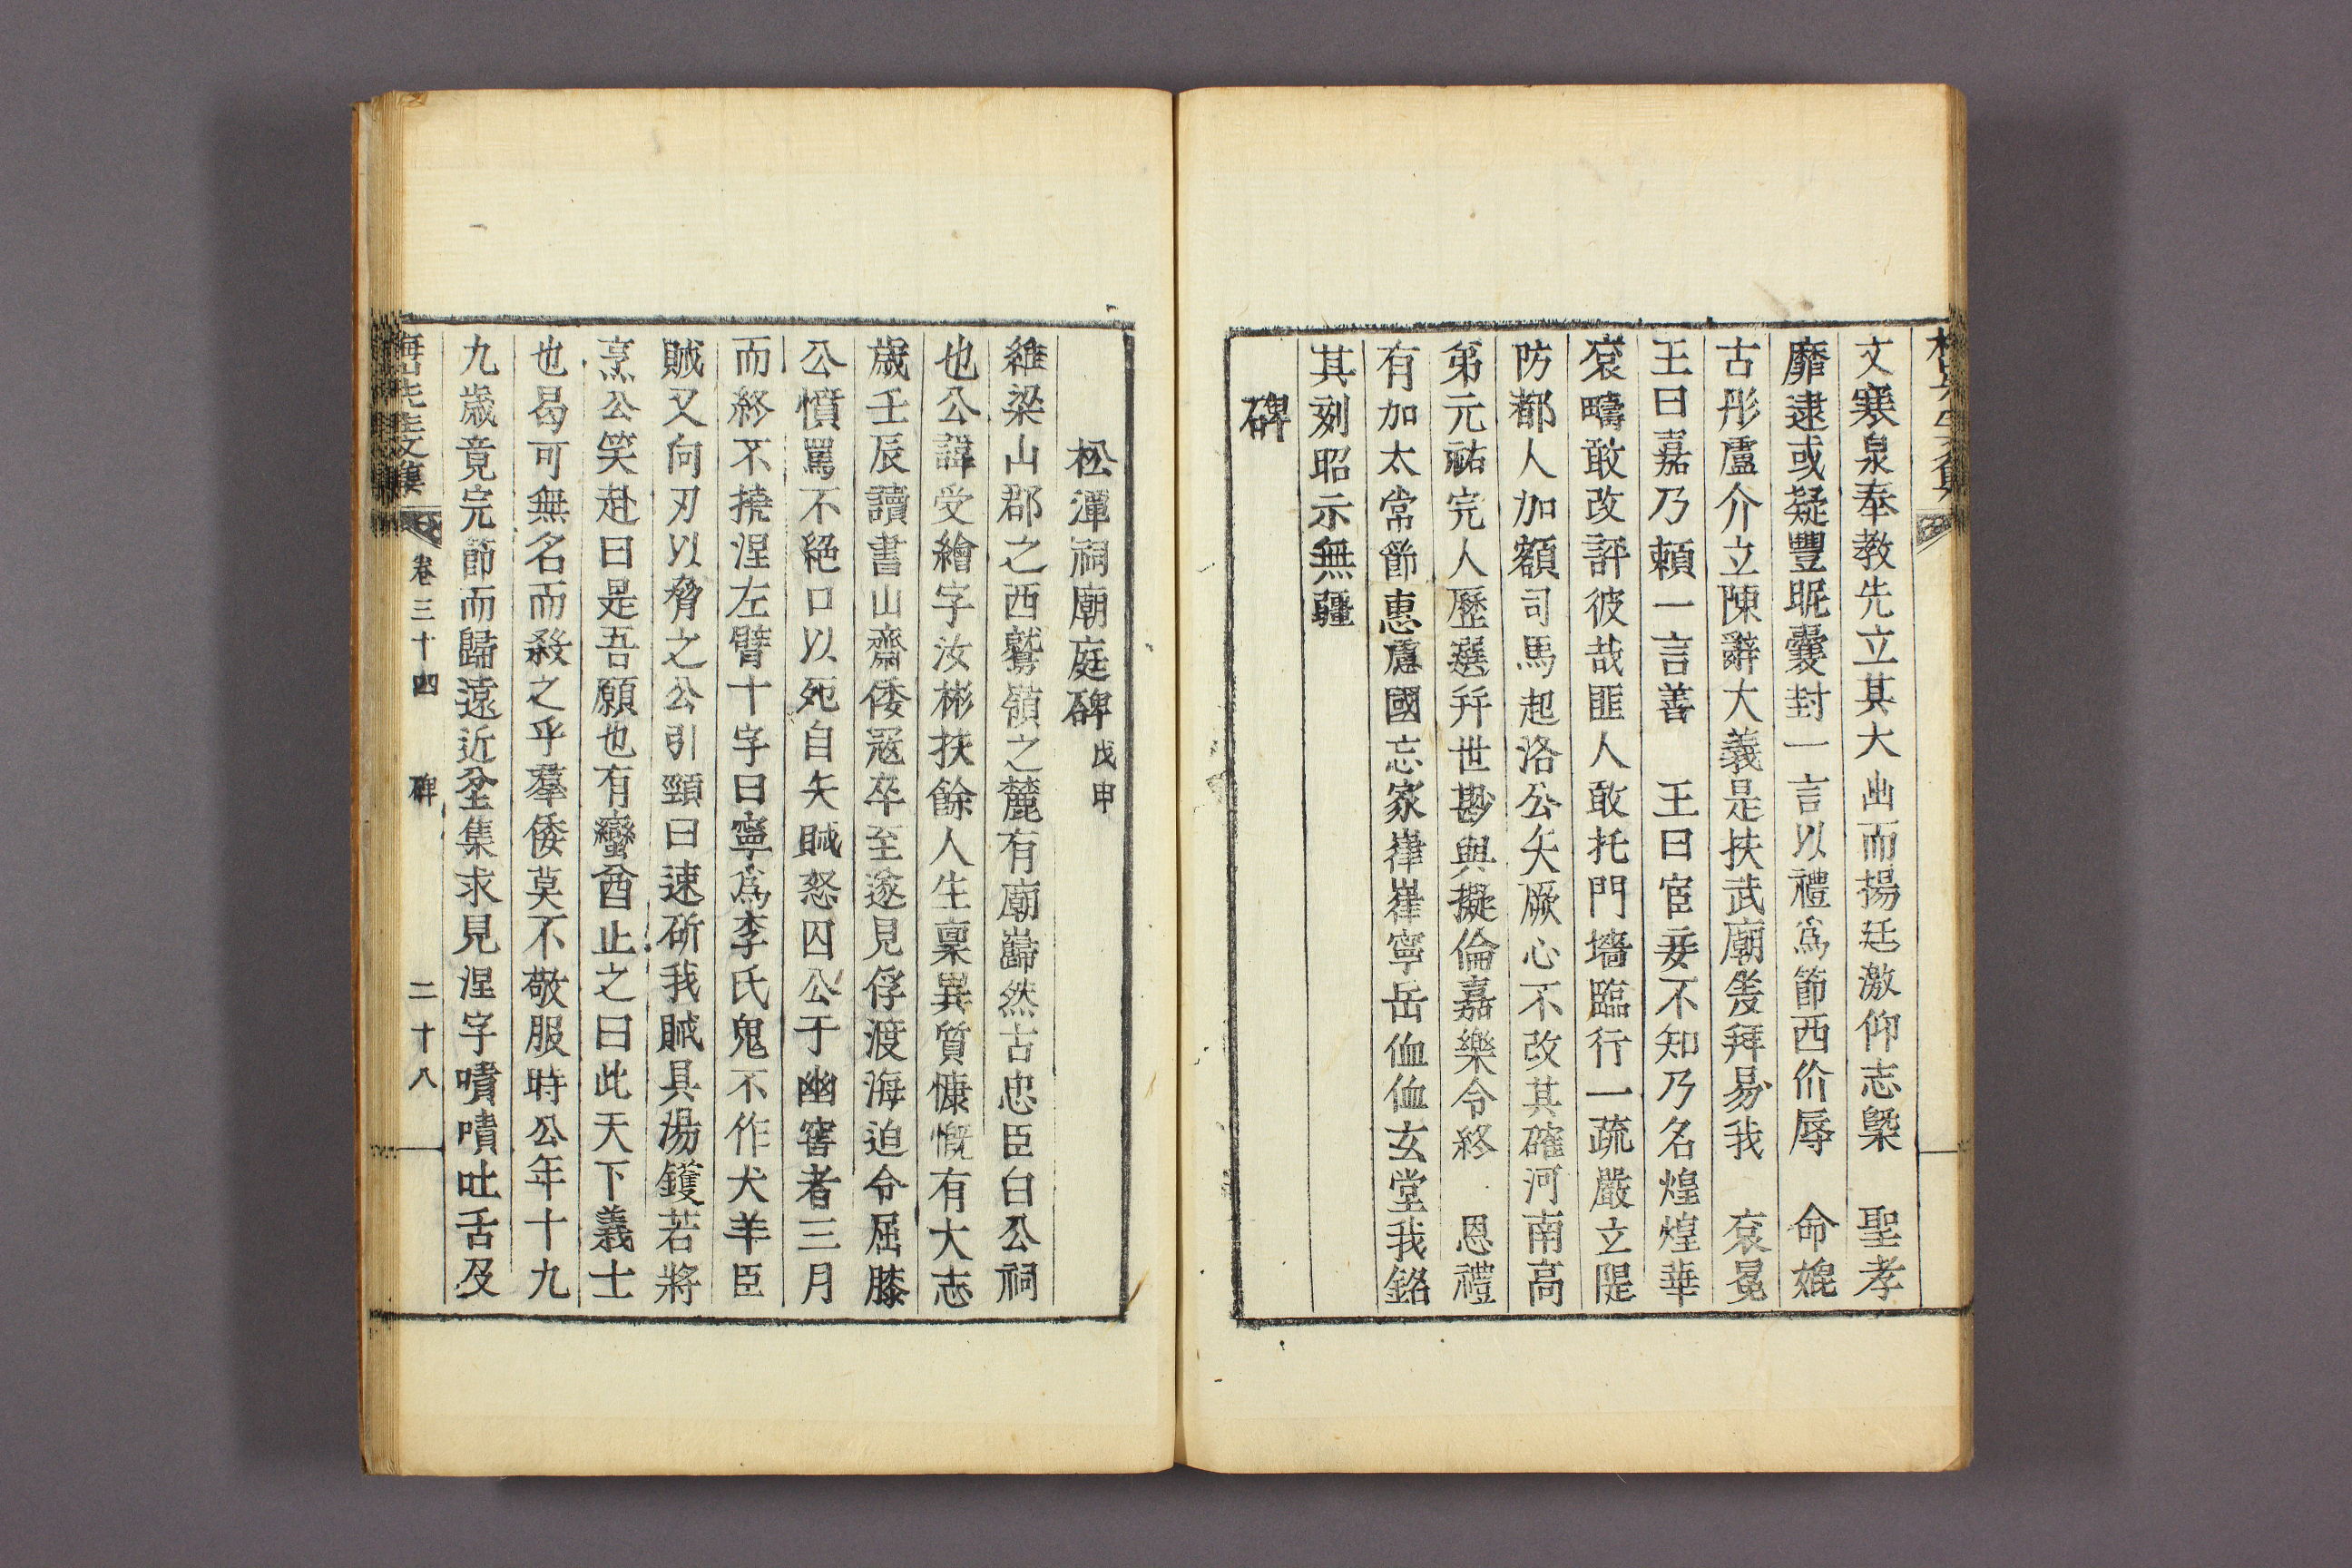 文寒泉奉教先立其大幽而揚廷激仰志槩　聖孝
靡逮或疑豐昵囊封一言以禮爲節西价辱　命媲
古彤廬介立陳辭大義是扶武廟夤拜昜我　袞冕
王曰嘉乃賴一言善　王曰宦妾不知乃名煌煌華
袞疇敢改評彼哉匪人敢托門墻臨行一疏嚴立隄
防都人加額司馬起洛公矢厥心不改其確河南高
第元祐完人歷選幷世尠與擬倫嘉樂令終　恩禮
有加太常節惠慮國忘家嵂嵂寧岳侐侐玄堂我銘
其刻昭示無疆
碑
松潭祠廟庭碑戊申
維梁山郡之西鷲嶺之麓有廟巋然古忠臣白公祠
也公諱受繪字汝彬扶餘人生稟異質慷慨有大志
歲壬辰讀書山齋倭寇卒至遂見俘渡海迫令屈膝
公憤罵不絕口以死自矢賊怒囚公于幽窖者三月
而終不撓涅左臂十字曰寧爲李氏鬼不作犬羊臣
賊又向刃以脅之公引頸曰速斫我賊具湯鑊若將
烹公笑赴曰是吾願也有蠻酋止之曰此天下義士
也曷可無名而殺之乎羣倭莫不敬服時公年十九
九歲竟完節而歸遠近坌集求見涅字嘖嘖吐舌及
先生文集　卷三十四　碑　二十八